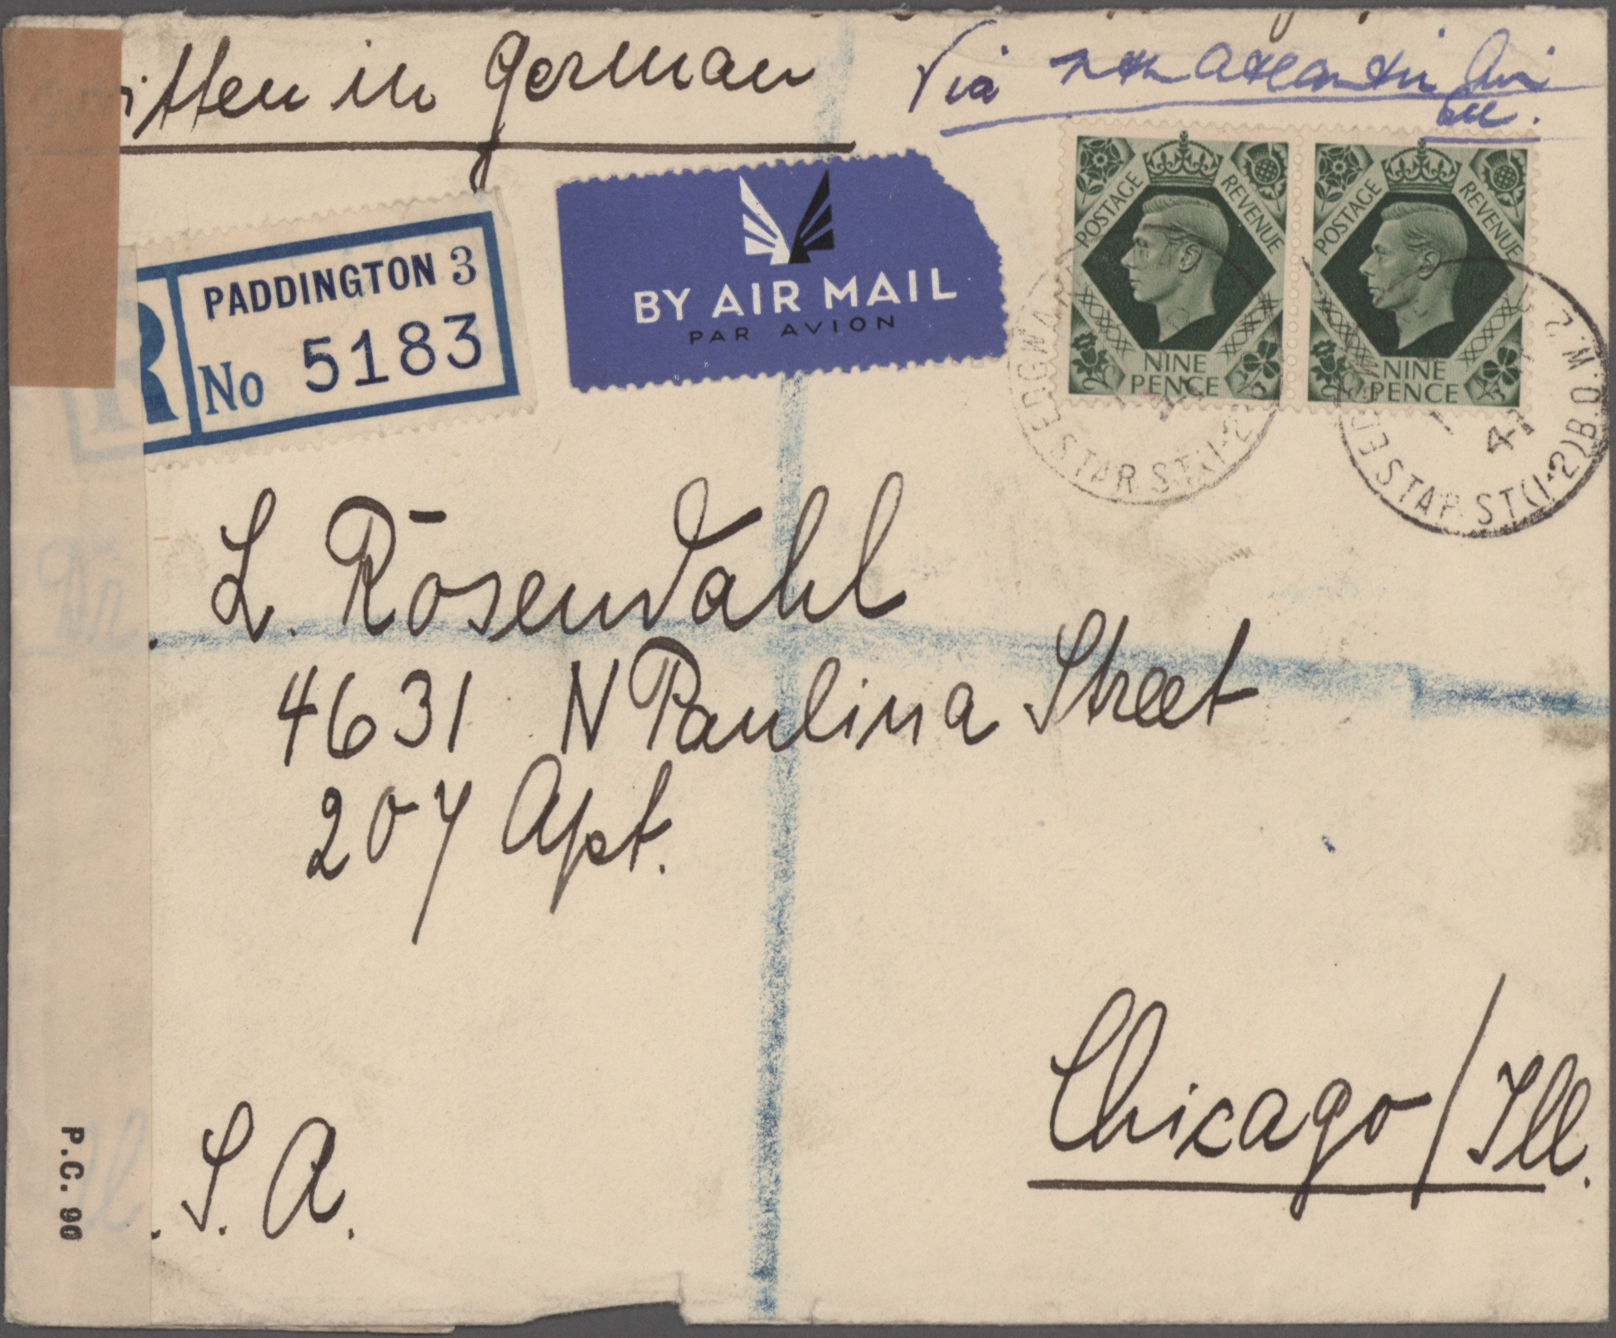 itten in German
Via Nth Atlantic Air
PADDINGTON 3
R No 5183
BY AIR MAIL
PAR AVION
POSTAGE REVENUE
NINE
PENCE
POSTAGE REVENUE
NINE
PENCE
STAR ST (1-2)
STAR ST (1-2) B.O. W.2
Dr. L. Rosendahl
4631 N Paulina Street
207 Apt.
Chicago/Ill.
.S.A.
P.C. 90